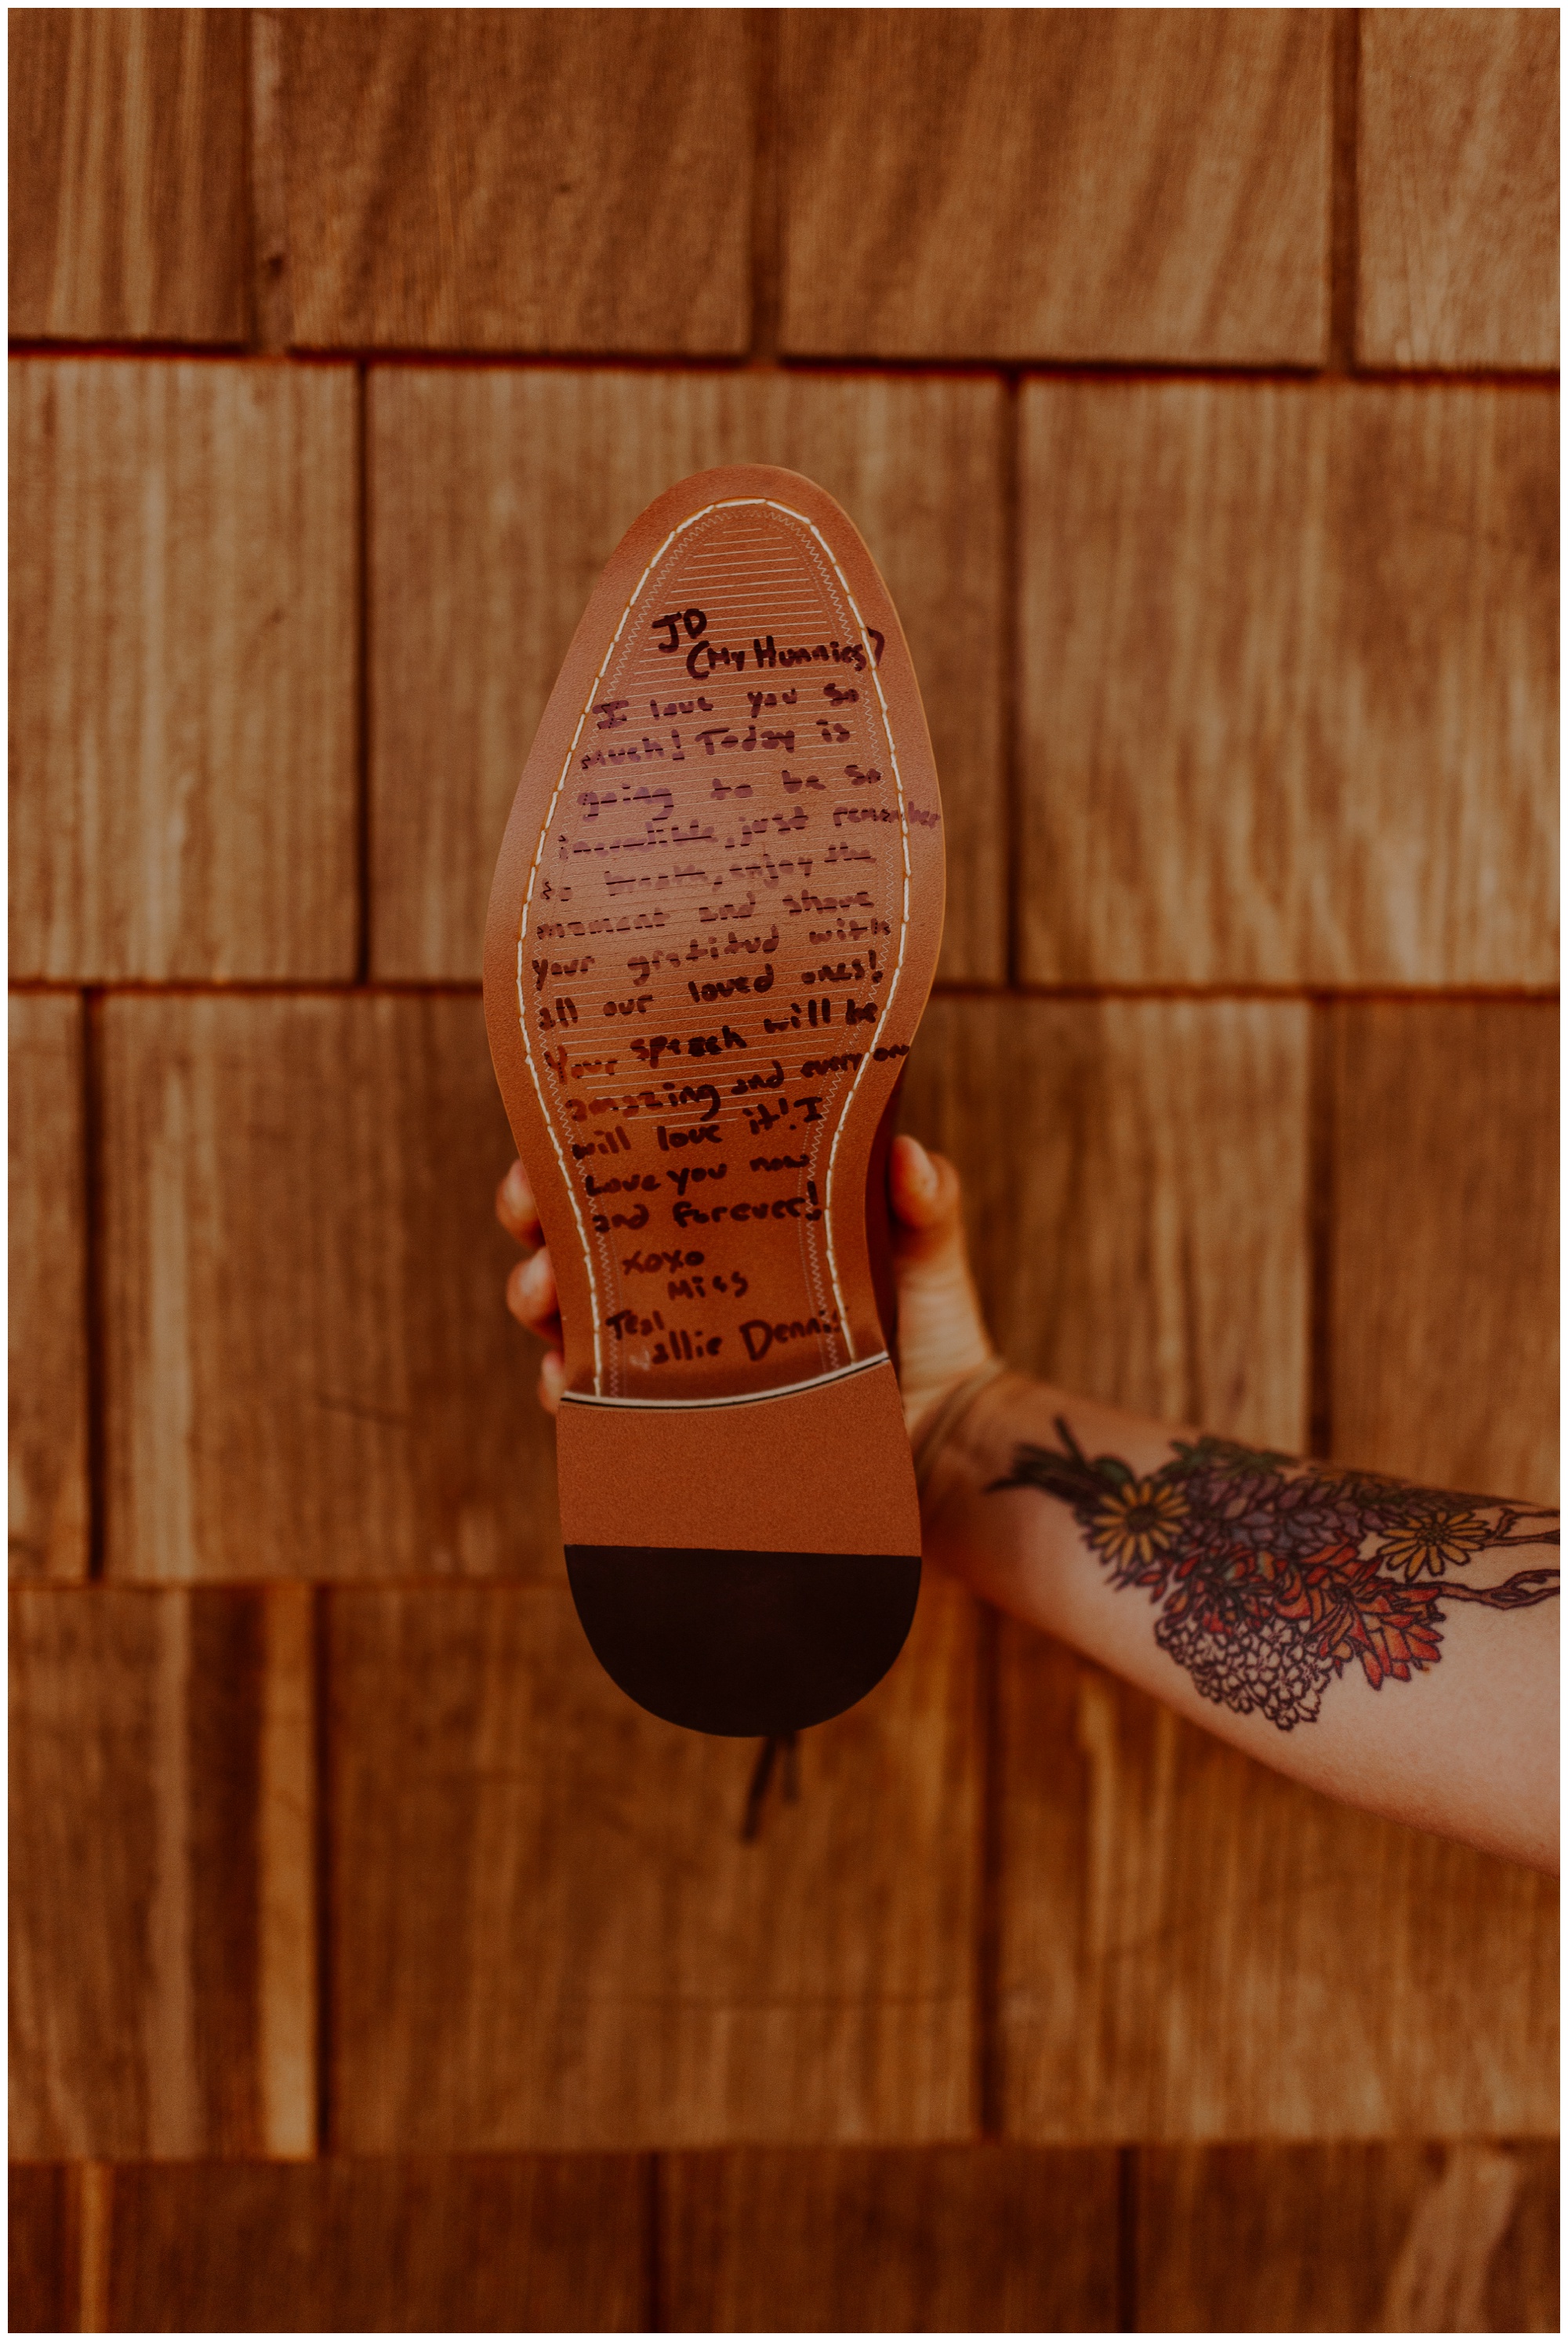 JD
(My Hunnies)
I love you so
much! Today is
going to be so
incredible, just remember
to breath, enjoy the
moment and share
your gratitud with
all our loved ones!
Your speech will be
amazing and everyone
will love it! I
Love you now
and forever!
xoxo
Miss
Teal
allie Dennis